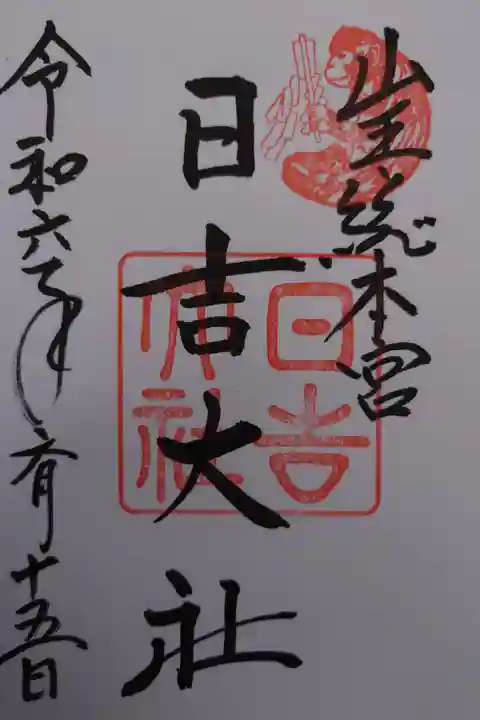 山王総本宮
日吉大社
日吉大社
令和六年六月十五日